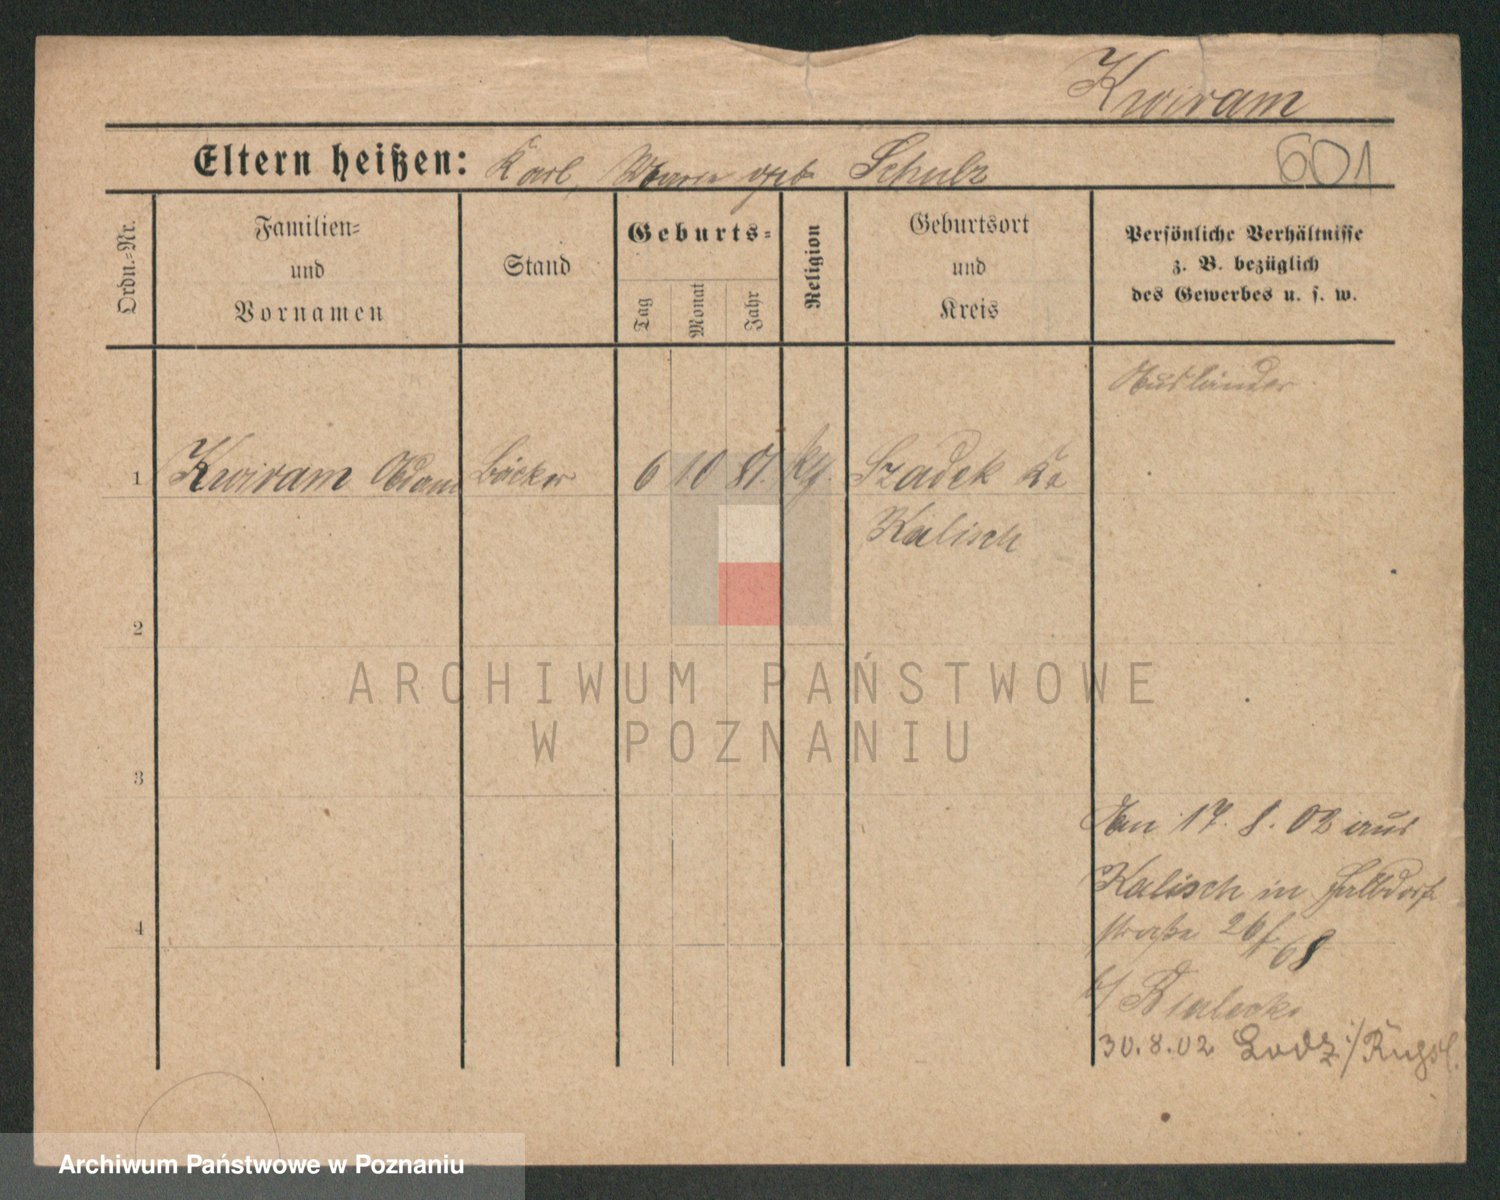 Kwiram
Eltern heißen: Karl, Maria geb Schulz
601
Ordn.-Nr.
Familien-
und
Vornamen
Stand
Geburts-
Tag
Monat
Jahr
Religion
Geburtsort
und
Kreis
Persönliche Verhältnisse
z. B. bezüglich
des Gewerbes u. s. w.
Ausländer
1 Kwiram Adam Bäcker 6 10 81. kg. Szadek
Kalisch
2
ARCHIWUM PAŃSTWOWE
W POZNANIU
3
Am 17. 8. 02 aus
Kalisch in
straße 26/68
b/ Bialecki
4
30.8.02 Lodz
Archiwum Państwowe w Poznaniu